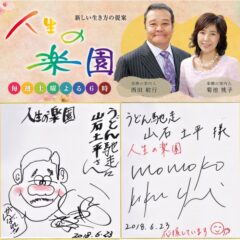 新しい生き方の提案
人生の楽園
毎週土曜よる6時
楽園の案内人
西田敏行
楽園の案内人
菊池桃子
人生の楽園
うどん馳走
山石土平さん
2018.6.23
うどん馳走
山石土平様
人生の楽園
momoko
2018.6.23
応援しています